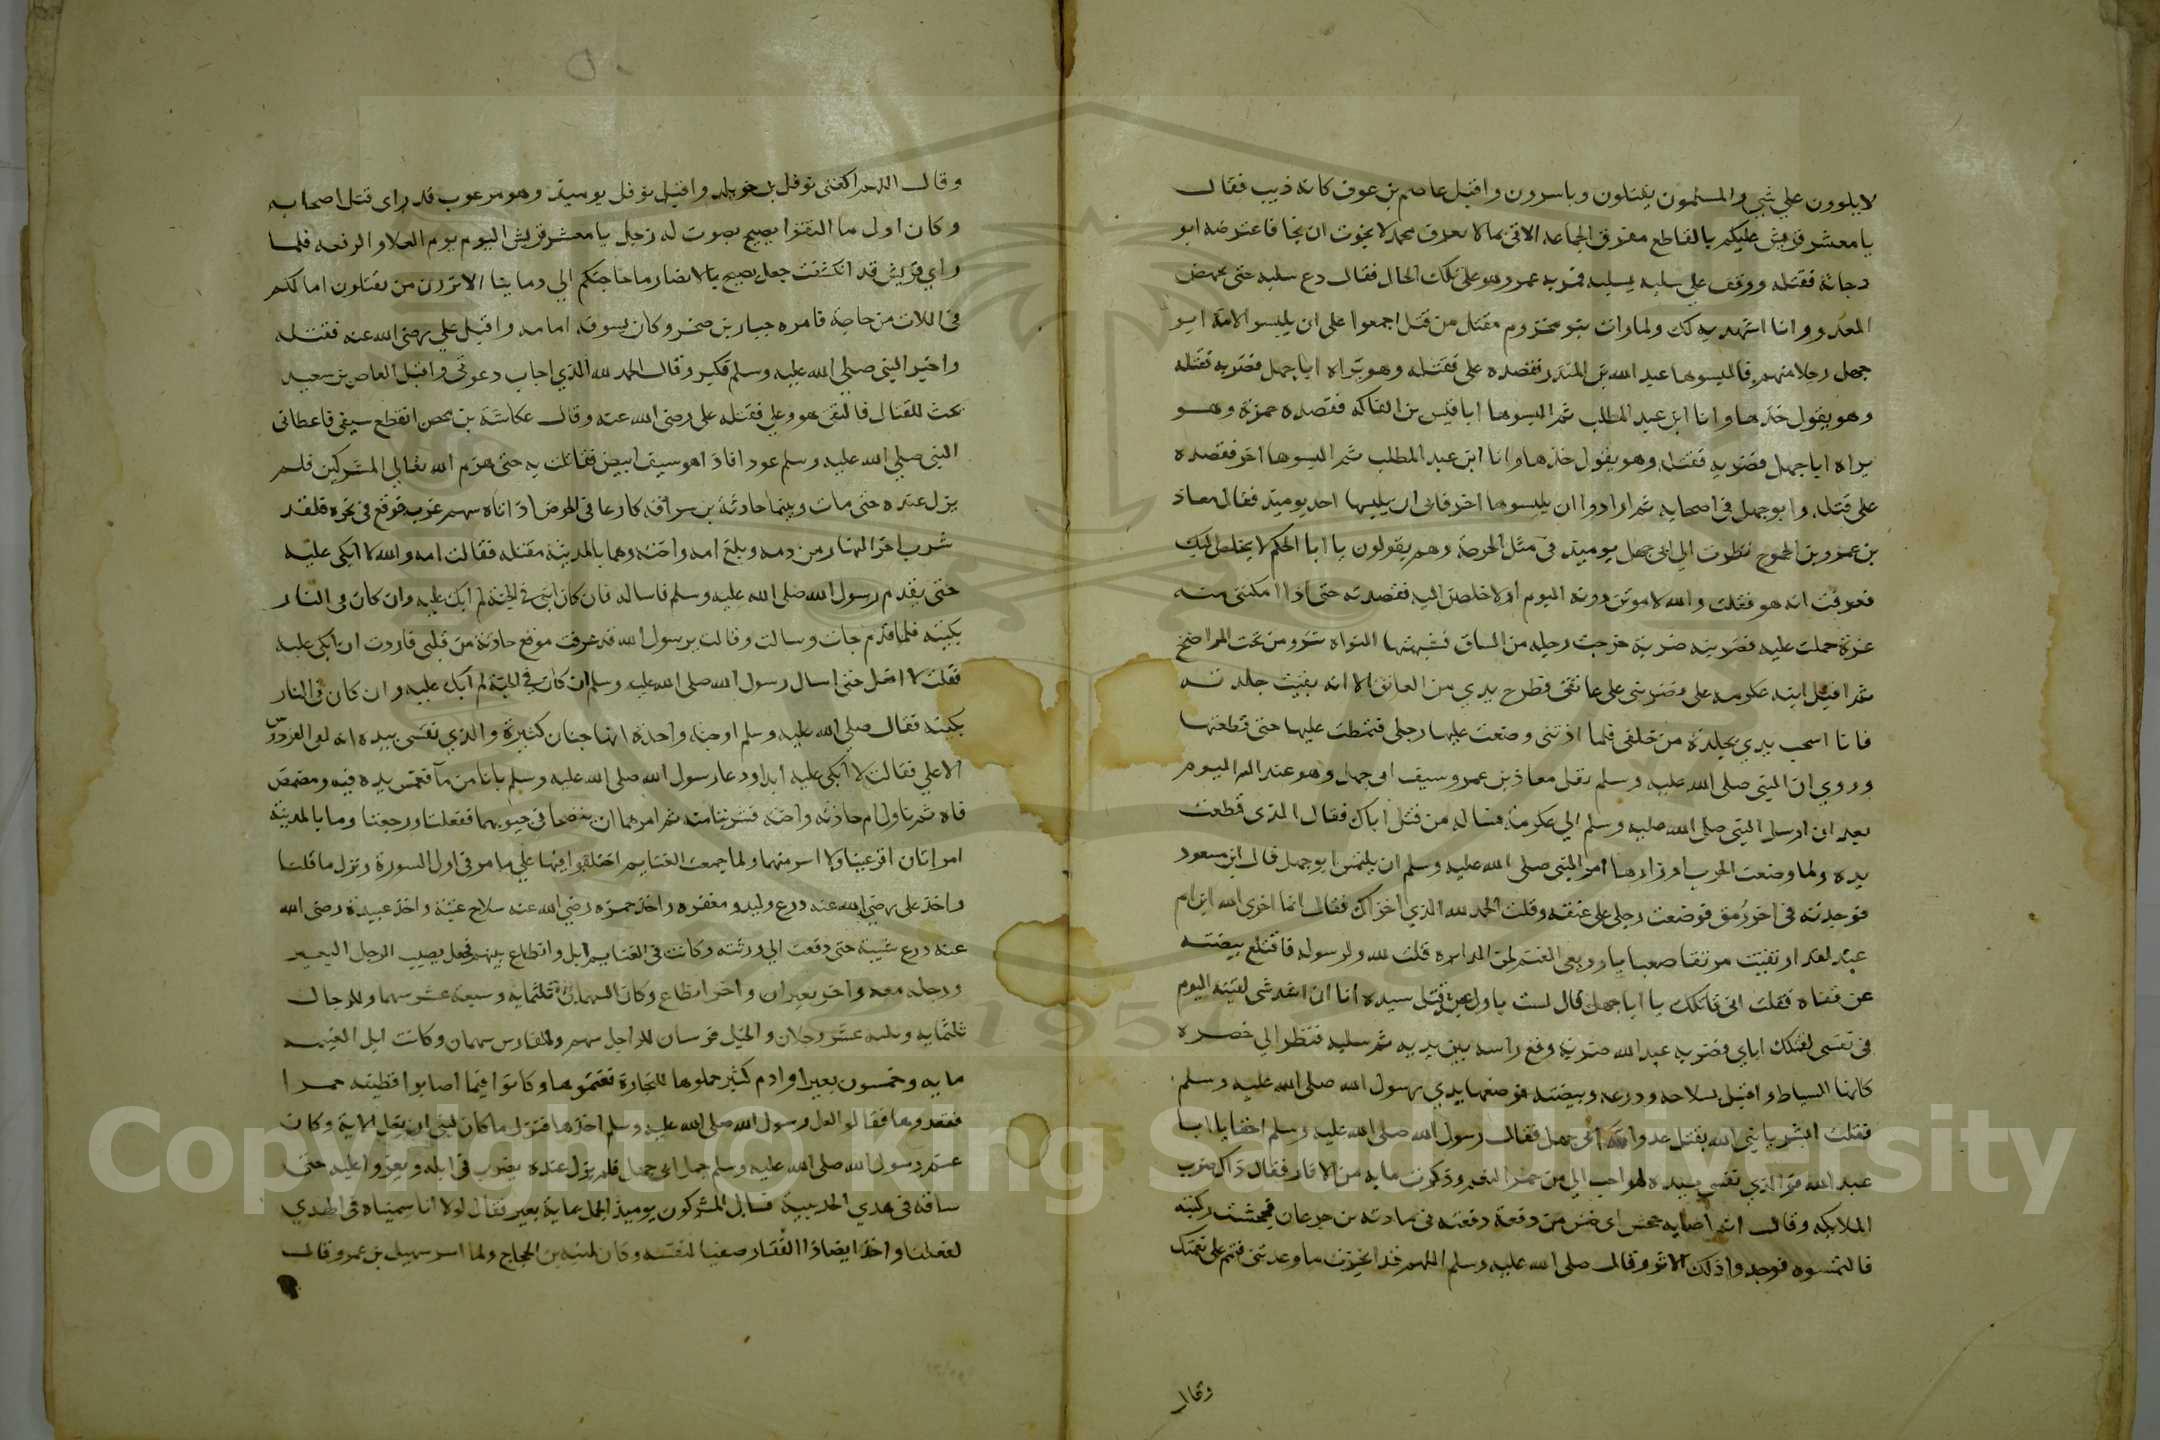 لا يلوون على شي والمسلمون يقتلون وياسرون واقبل عاصم بن عوف كانه ذيب فقال
يا معشر قريش عليكم بالقاطع مفرق الجماعة الاتي بما لا يعرف محمد لا نجوت ان نجا فاعترضه ابو
دجانة فقتله ووقف على سلبه يسلبه فمر به عمر وهو على تلك الحال فقال دع سلبه حتى يجهض
العدو وانا اشهد به لك ولما رات بنو مخزوم مقتل من قتل اجمعوا على ان يلبسوا لامة ابو
جهل رجلا منهم فالبسوها عبد الله بن المنذر فقصده علي فقتله وهو يراه ابا جهل فضربه فقتله
وهو يقول خذها وانا ابن عبد المطلب ثم البسوها ابا قيس بن الفاكه فقصده حمزة وهو
يراه ابا جهل فضربه فقتله وهو يقول خذها وانا ابن عبد المطلب ثم البسوها اخر فقصده
علي فقتله وابو جهل في اصحابه ثم ارادوا ان يلبسوها اخر فابى ان يلبسها احد يوميذ فقال معاذ
بن عمرو بن الجموح نظرت الى ابي جهل يوميذ في مثل الحرجة وهم يقولون يا ابا الحكم لا يخلص اليك
فعرفت انه هو فقلت والله لاموتن دونه اليوم او لاخلصن اليه فقصدته حتى اذا امكنتني منه
غرة حملت عليه فضربته ضربة خرجت رجله من الساق فشبهتها النواة تنزو من تحت المراضخ
ثم اقبل ابنه عكرمه علي فضربني على عاتقي فطرح يدي من العاتق الا انه بقيت جلدة
فانا اسحب يدي بجلدة من خلفي فلما اذتني وضعت عليها رجلي فتمطت عليها حتى قطعتها
وروي ان النبي صلى الله عليه وسلم نفل معاذ بن عمرو سيف ابي جهل وهو عند اله اليوم
بعد ان ارسل النبي صلى الله عليه وسلم الى عكرمة فساله من قتل اباك فقال الذي قطعت
يده ولما وضعت الحرب اوزارها امر النبي صلى الله عليه وسلم ان يلتمس ابو جهل قال ابن مسعود
فوجدته في اخر رمق فوضعت رجلي على عنقه وقلت الحمد لله الذي اخزاك فقال انما اخزى الله ابن ام
عبد لقد ارتقيت مرتقا صعبا يا رويعي الغنم لمن الدايره قلت لله ولرسوله فاقتلع بيضته
عن قفاه فقلت اني قاتلك يا ابا جهل قال لست باول عبد قتل سيده انا ان اشد شي لقيته اليوم
في نفسي لقتلك اياي فضربه عبد الله ضربة وقع راسه بين يديه ثم سلبه فنظر الى خصره
كانها السياط واقبل بسلاحه ودرعه وبيضته فوضعها يدي رسول الله صلى الله عليه وسلم
فقلت ابشر يا نبي الله بقتل عدو الله ابي جهل فقال رسول الله صلى الله عليه وسلم احقا يا ابا
عبد الله فوالذي نفسي بيده لهو احب الي من حمر النعم وذكرت ما به من الاثار فقال ذاك ضرب
الملايكه وقال انه اصابه جحش اي خدش من دفعة دفعته في مادبة بن جدعان فجحشت ركبته
فالتمسوه فوجدوا ذلك الاثر وقال صلى الله عليه وسلم اللهم قد انجزت ما وعدتني فتمم علي نعمتك
وقال
وقال اللهم اكفني نوفل بن خويلد واقبل نوفل يوميذ وهو مرعوب قد راى قتل اصحابه
وكان اول ما التقوا يصيح بصوت له زجل يا معشر قريش اليوم يوم العلا والرفعه فلما
راي قريش قد انكشفت جعل يصيح يا للانصار ما حاجتكم الى دماينا الا ترون من تقتلون اما لكم
في اللات من حاجة فاسره جبار بن صخر وكان يسوقه امامه واقبل علي رضى الله عنه فقتله
واخبر النبي صلى الله عليه وسلم فكبر وقال الحمد لله الذي اجاب دعوتي واقبل العاص بن سعيد
بحث للقتال فالتقى هو وعلي فقتله علي رضى الله عنه وقال عكاشة بن محصن انقطع سيفي فاعطاني
النبي صلى الله عليه وسلم عودا فاذا هو سيف ابيض فقاتلت به حتى هزم الله تعالى المشركين فلم
يزل عنده حتى مات وبينما حارثة بن سراقة كارعا في الحوض اذ اتاه سهم غرب فوقع في نحره فلقد
شرب اخر النهار من دمه وبلغ امه واخته وهما بالمدينة مقتله فقالت امه والله لا ابكي عليه
حتى يقدم رسول الله صلى الله عليه وسلم فاساله فان كان ابني في الجنة لم ابك عليه وان كان في النار
بكيته فلما قدم جات وسالت وقالت يرسول الله قد عرفت موقع حارثة من قلبي فاردت ان ابكي عليه
فقلت لا افعل حتى اسال رسول الله صلى الله عليه وسلم ان كان في الجنة لم ابك عليه وان كان في النار
بكيته فقال صلى الله عليه وسلم اوجنة واحدة انها جنان كثيرة والذي نفسي بيده انه لفي الفردوس
الاعلى فقالت لا ابكي عليه ابدا ودعا رسول الله صلى الله عليه وسلم بانا من ما فغمس يده فيه ومضمض
فاه ثم ناول ام حارثه واخته فشربتا منه ثم امرهما ان ينضحا في جيوبهما ففعلتا ورجعتا وما بالمدينة
امراتان اقر عينا ولا اسر منهما ولما جمعت الغنايم اختلفوا فيها على ما مر في اول السورة ونزل ما قلت
واخذ علي رضي الله عنه درع وليد ومغفره واخذ حمزه رضي الله عنه سلاح عتبة واخذ عبيدة رضى الله
عنه درع شيبة حتى دفعت الى ورثته وكانت في الغنايم ابل وانطاع بينهم فجعل يصيب الرجل البعير
ورحله معه واخر بعيران واخر انطاع وكان السهمان ثلثمايه وسبعة عشر سهما وللرجال
ثلثمايه وثلثه عشر رجلان والخيل فرسان للراجل سهم وللفارس سهمان وكانت ابل الغنيمه
مايه وخمسون بعيرا وادم كثير حملوها للتجارة فغنموها وكانوا فيما اصابوا قطيفه حمرا
ففقدوها فقالوا لعل رسول الله صلى الله عليه وسلم اخذها فنزل ما كان لنبي ان يغل الاية وكان
غنم رسول الله صلى الله عليه وسلم جمل ابي جهل فلم يزل عنده يضرب في ابله ويغزوا عليه حتى
ساقه في هدي الحديبية فسال المشركون يوميذ الجمل بماية بعير فقال لولا انا سميناه في الهدي
لفعلنا واخذ ايضا ذا الفقار صفيا لنفسه وكان لمنبه بن الحجاج ولما اسر سهيل بن عمرو قال
Copyright © King Saud University
1957